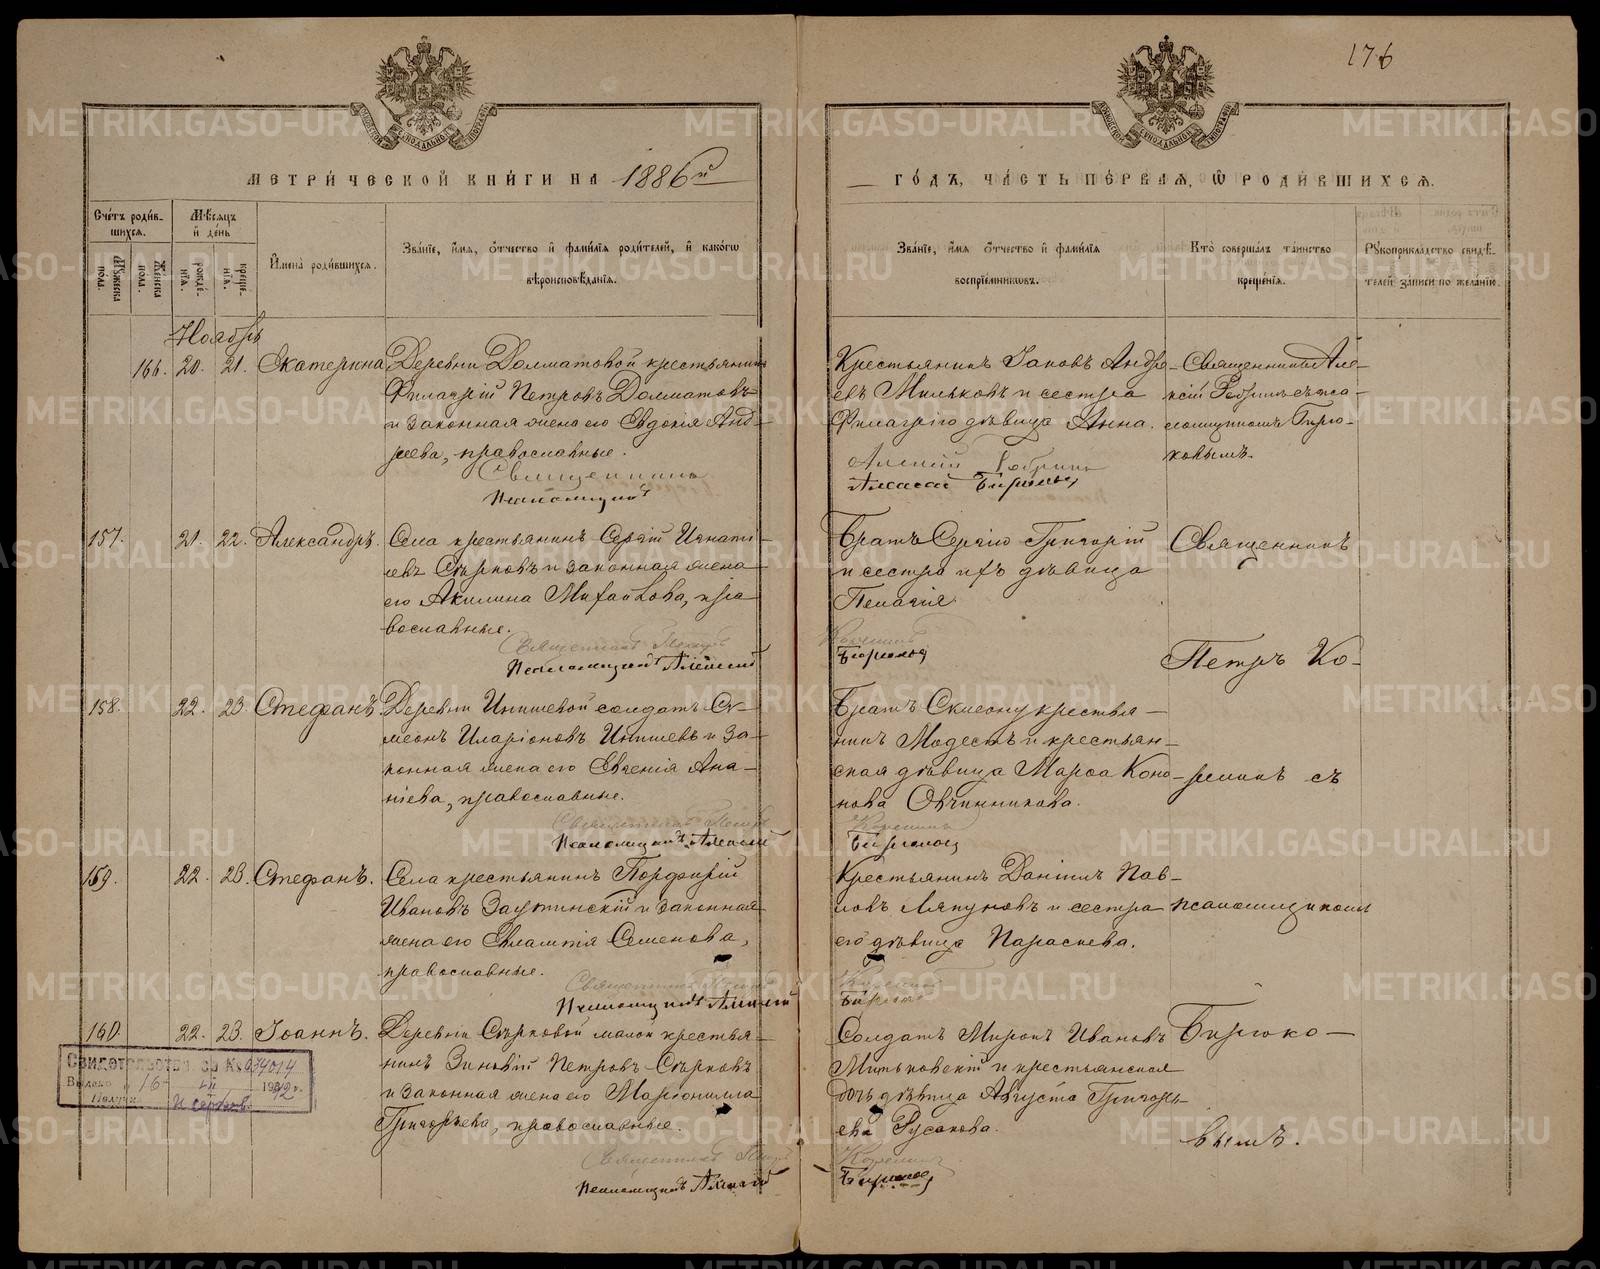 176
МЕТРИ́ЧЕСКОЙ КНИ́ГИ НА 1886й
ГО́ДЪ, ЧА́СТЬ ПЕ́РВАЯ, Ѡ РОДИ́ВШИХСЯ.
Сче́тъ роди́в-
шихся.
Му́жеска по́ла.
Же́нска по́ла.
Мѣ́сяцъ
и де́нь
рожде́-
нїя.
креще-
нїя.
И҆мена̀ роди́вшихся.
Зва́нїе, и҆́мя, ѻ҆́тчество и҆ фами́лїя роди́телей, и҆ како́гѡ
вѣроисповѣ́данїя.
Зва́нїе, и҆́мя ѻ҆́тчество и҆ фами́лїя
воспрїе́мниковъ.
Кто̀ соверша́лъ та́инство
креще́нїя.
Рꙋкоприкла́дство свидѣ́-
телей за́писи по жела́нїю.
Ноябрь
166. 20. 21. Екатерина
Деревни Долматовой крестьянинъ
Филагрій Петровъ Долматовъ
и законная жена его Евдокія Анд-
реева, православные.
Священникъ
Псаломщикъ
Крестьянинъ Іаковъ Андре-
евъ Мильковъ и сестра
Филагрія дѣвица Анна.
Алексій
Алексѣй Бирюковъ
Священникъ Але-
ксій съ пса-
ломщикомъ Бирю-
ковымъ.
157. 21. 22. Александръ.
Села крестьянинъ Сергій Игнаті-
евъ Сѣрковъ и законная жена
его Акилина Михайлова, пра-
вославные.
Священникъ Петръ
Псаломщикъ Алексѣй
Братъ Сергію Григорій
и сестра ихъ дѣвица
Пелагія
Бирюковъ
Священникъ
Петръ Ко-
158. 22. 23. Стефанъ.
Деревни солдатъ Си-
меонъ Иларіоновъ и за-
конная жена его Евгенія Ана-
ніева, православные.
Священникъ Петръ
Псаломщикъ Алексѣй
Братъ Симеону крестья-
нинъ Модестъ и крестьян-
ская дѣвица Марѳа Коно-
нова Овчинникова.
Бирюковъ
съ
159. 22. 23. Стефанъ.
Села крестьянинъ Порфирій
Ивановъ и законная
жена его Евлампія Семенова,
православные.
Священникъ Петръ
Псаломщикъ Алексѣй
Крестьянинъ Даніилъ Пав-
ловъ Ляпуновъ и сестра
его дѣвица Параскева.
Бирюковъ
псаломщикомъ
160. 22. 23. Іоаннъ.
Деревни Сѣрковой малой крестья-
нинъ Зиновій Петровъ Сѣрковъ
и законная жена его Маріонилла
Григорьева, православные.
Священникъ Петръ
Псаломщикъ Алексѣй
Солдатъ Миронъ Ивановъ
Митьковскій и крестьянская
дочь дѣвица Августа Григорь-
ева Русакова.
Бирюковъ
Бирюко-
вымъ.
Свидетельство
Выдано 16 VII 1942 г.
METRIKI.GASO-URAL.RU